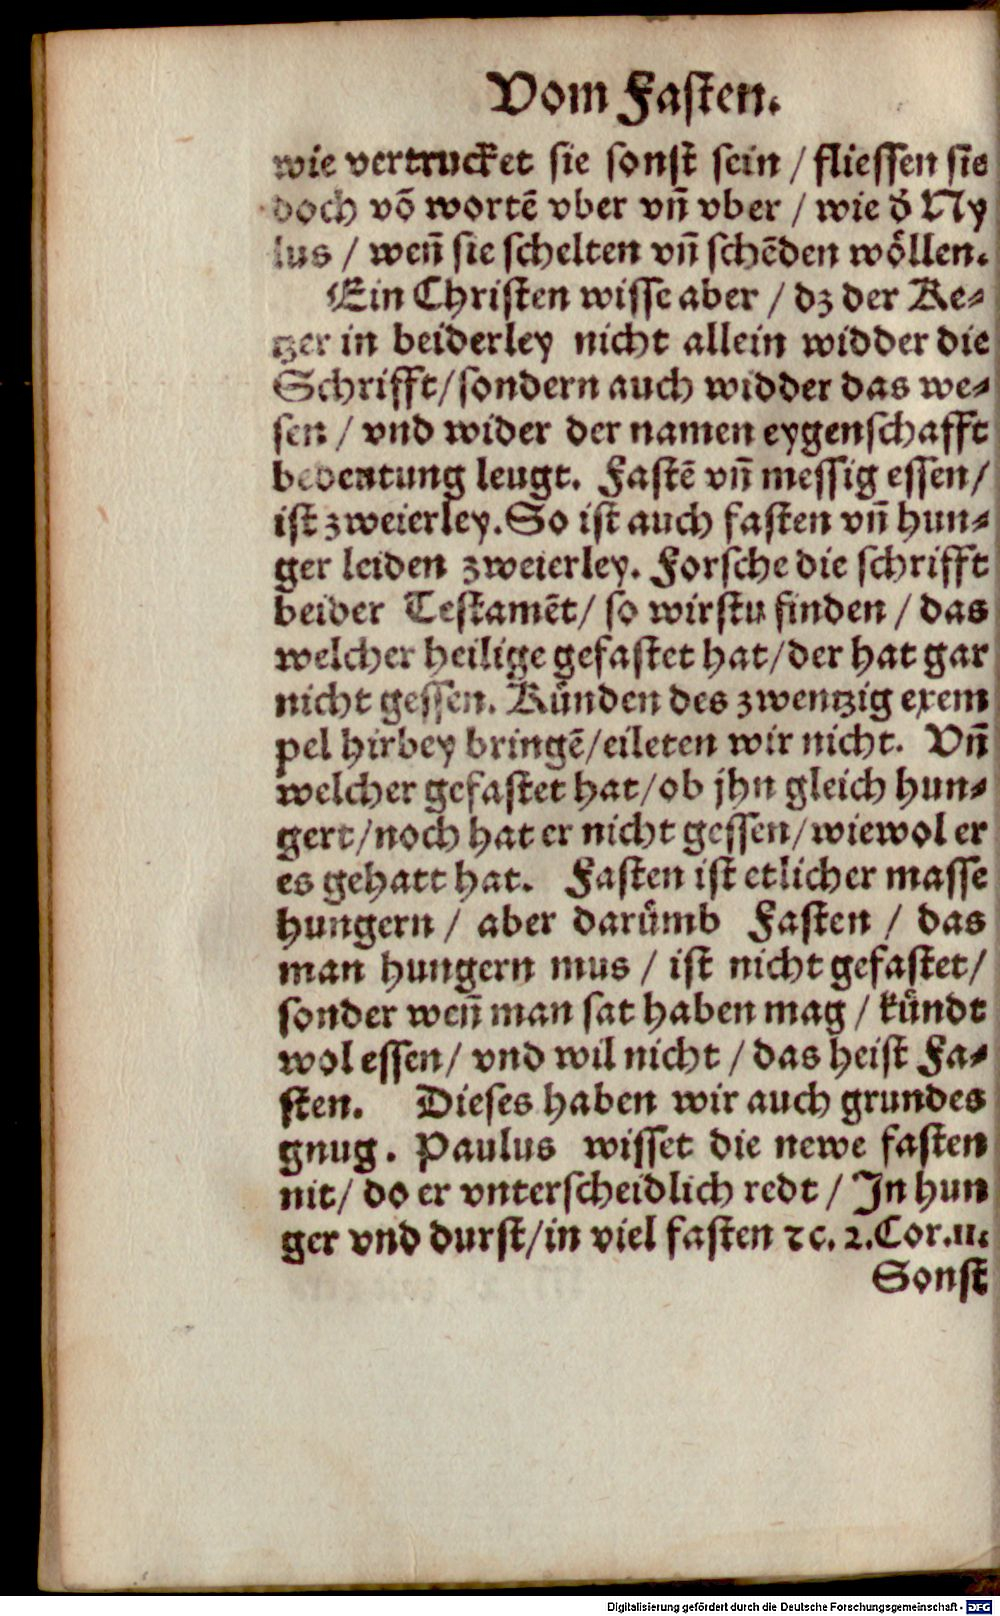 Vom Fasten.
wie vertrucket sie sonst sein / fliessen sie
doch võ wortẽ vber vñ vber / wie d̕ Ny
lus / weñ sie schelten vñ schẽden wöllen.
Ein Christen wisse aber / dz der Ke⸗
tzer in beiderley nicht allein widder die
Schrifft / sondern auch widder das we⸗
sen / vnd wider der namen eygenschafft
bedeutung leugt. Fastẽ vñ messig essen /
ist zweierley. So ist auch fasten vñ hun⸗
ger leiden zweierley. Forsche die schrifft
beider Testamẽt / so wirstu finden / das
welcher heilige gefastet hat / der hat gar
nicht gessen. Künden des zwentzig exem
pel hirbey bringẽ / eileten wir nicht. Vñ
welcher gefastet hat / ob jhn gleich hun⸗
gert / noch hat er nicht gessen / wiewol er
es gehatt hat. Fasten ist etlicher masse
hungern / aber darümb Fasten / das
man hungern mus / ist nicht gefastet /
sonder weñ man sat haben mag / kündt
wol essen / vnd wil nicht / das heist Fa⸗
sten. Dieses haben wir auch grundes
gnug. Paulus wisset die newe fasten
nit / do er vnterscheidlich redt / In hun
ger vnd durst / in viel fasten ꝛc. 2. Cor. 11.
Sonst
Digitalisierung gefördert durch die Deutsche Forschungsgemeinschaft - DFG